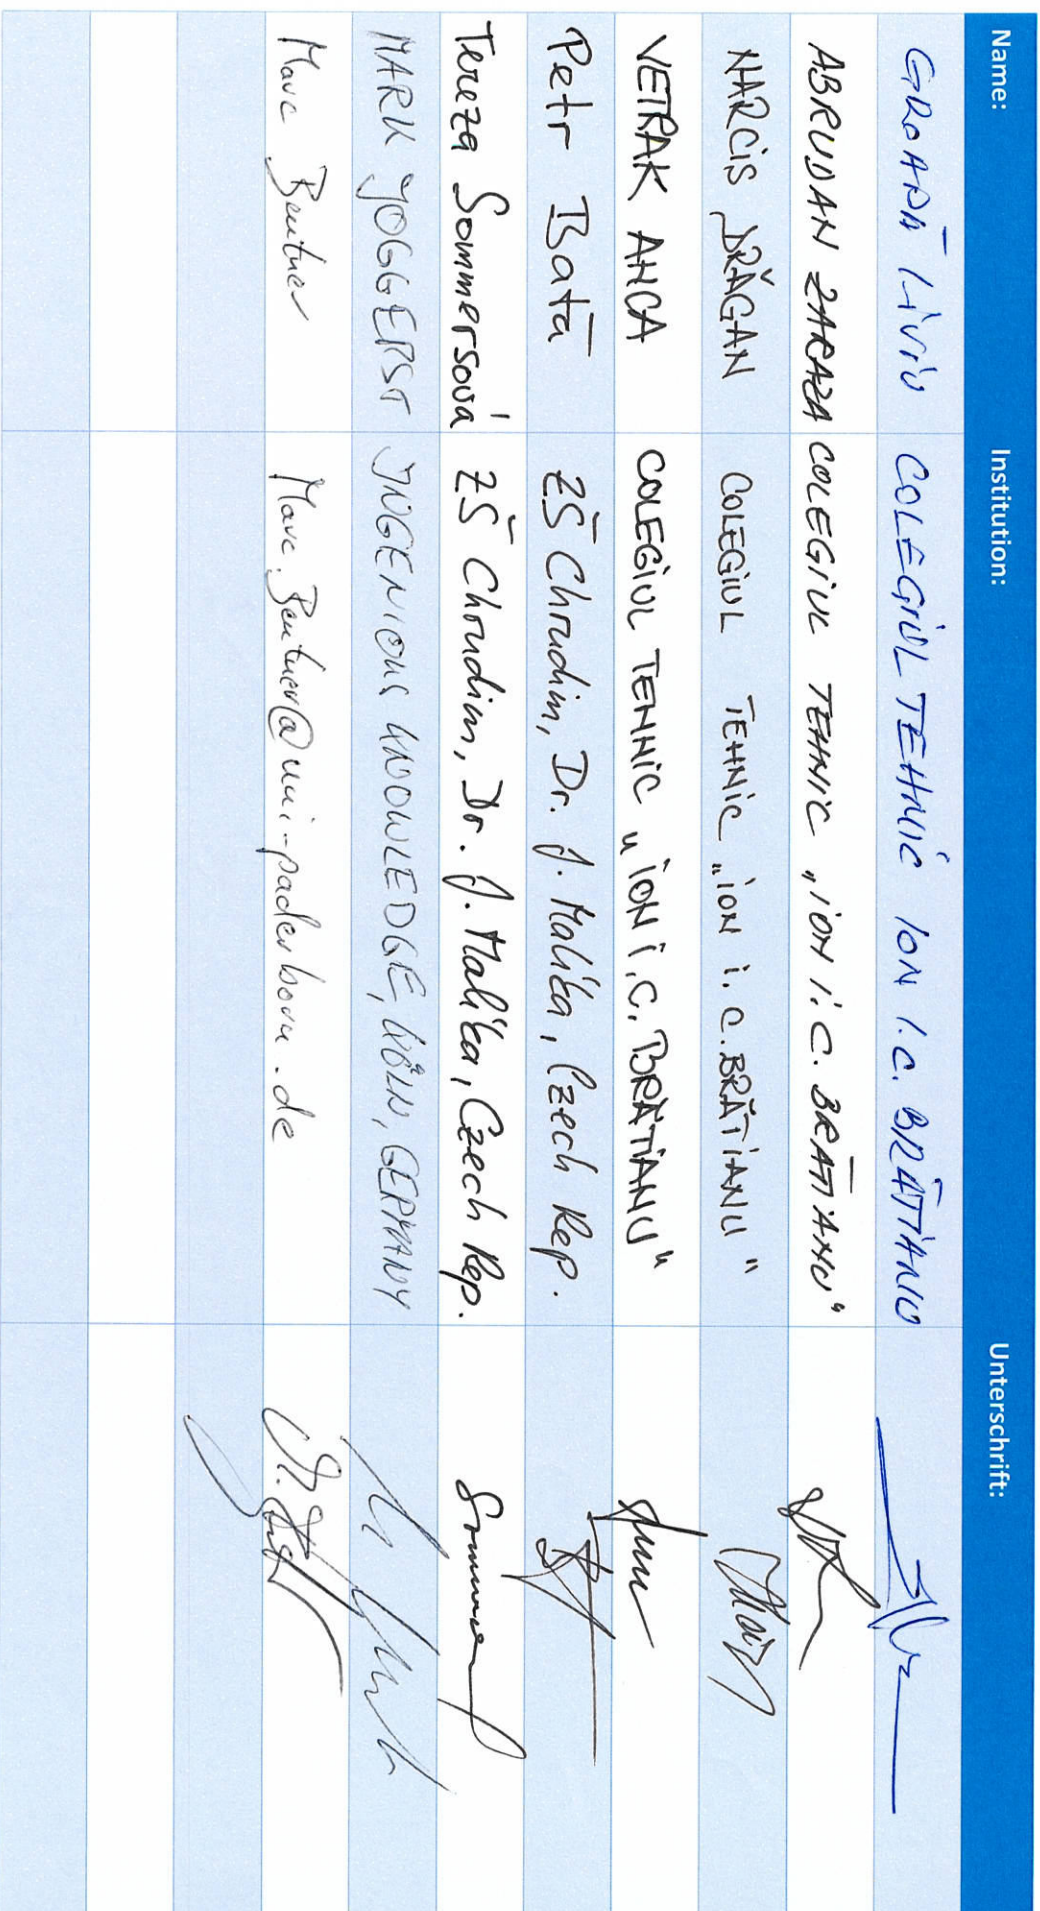 Name: Institution: Unterschrift:
GROAPĂ Liviu COLEGIUL TEHNIC ION I.C. BRĂTIANU
ABRUDAN COLEGIUL TEHNIC „ION I.C. BRĂTIANU"
NARCIS DRĂGAN COLEGIUL TEHNIC „ION I.C. BRĂTIANU"
VETRAK ANCA COLEGIUL TEHNIC „ION I.C. BRĂTIANU"
Petr Bata ZŠ Chrudim, Dr. J. Malíka, Czech Rep.
Tereza Sommersová ZŠ Chrudim, Dr. J. Malíka, Czech Rep.
MARK JOGGERST INGENIOUS KNOWLEDGE, KÖLN, GERMANY
Marc Beutner Marc.Beutner@uni-paderborn.de